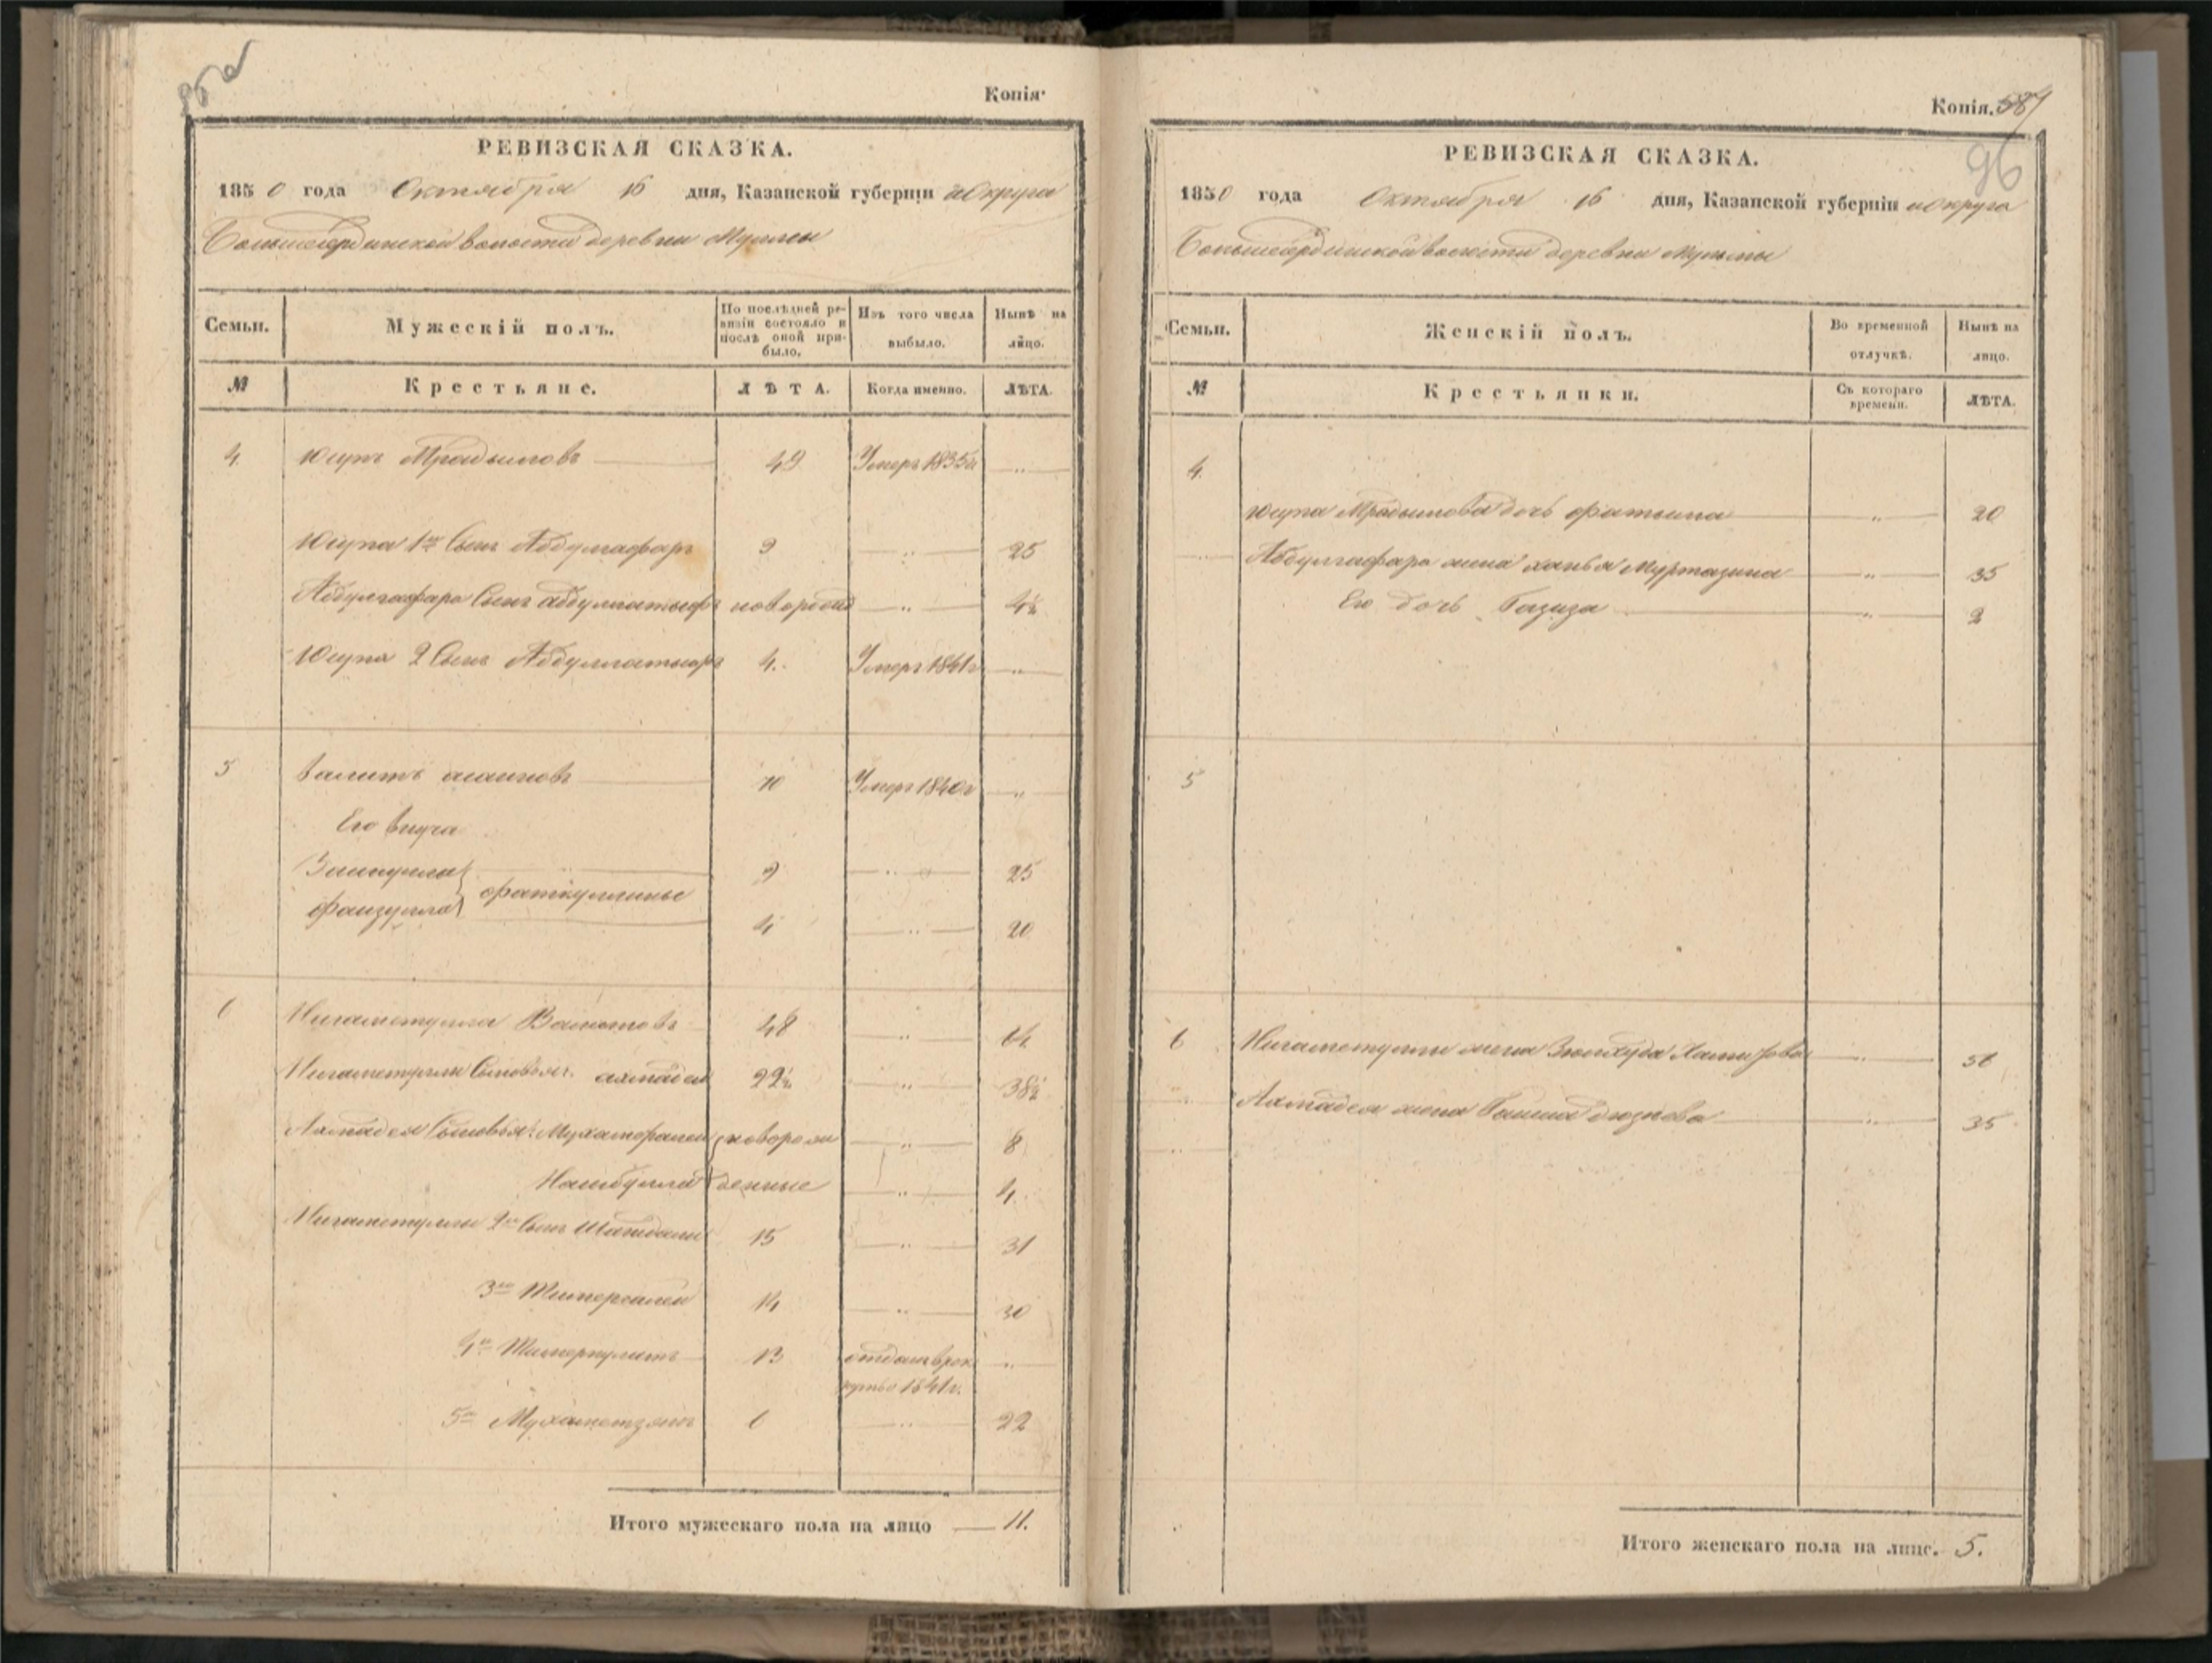 Копія.
РЕВИЗСКАЯ СКАЗКА.
1850 года Октября 16 дня, Казанской губерніи и округа
волости деревни
Семьи. Мужескій полъ. По послѣдней ревизіи состояло и послѣ оной прибыло. Изъ того числа выбыло. Нынѣ на лицо.
№ Крестьяне. ЛѢТА. Когда именно. ЛѢТА.
4. Юсупъ 49 Умеръ 1835 г. „
Юсупа 1й Сынъ Абдулгафаръ 9 „ 25
Абдулгафара Сынъ Абдуллатыфъ новорожд „ 4½
Юсупа 2 Сынъ Абдуллатыфъ 4. Умеръ 1841 г „
5 Валитъ 70 Умеръ 1840 г „
Его внуча
Зайнулла } Фаткуллины 9 „ 25
Фаизулла } 4 „ 20
6 Нигаметулла 48 „ 64
Нигаметуллы Сыновья: Ахмадей 22½ „ 38½
Ахмадея Сыновья: новорож „ 8
денные „ 4.
Нигаметуллы 2й Сынъ 15 „ 31
3й Тимергалей 14 „ 30
4й 13 отданъ врек „
рутъ 1841 г.
5й Мухаметзянъ 6 „ 22
Итого мужескаго пола на лицо 11.
Копія. 587
96
РЕВИЗСКАЯ СКАЗКА.
1850 года Октября 16 дня, Казанской губерніи и округа
волости деревни
Семьи. Женскій полъ. Во временной отлучкѣ. Нынѣ на лицо.
№ Крестьянки. Съ котораго времени. ЛѢТА.
4.
Юсупа дочь Фатыма „ 20
Абдулгафара жена Муртазина „ 35
Его дочь Газиза „ 2
5
6 Нигаметуллы жена „ 56
Ахмадея жена „ 35
Итого женскаго пола на лицо. 5.